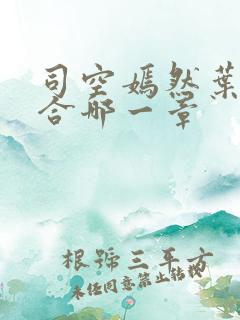 司空嫣然葉
合那一章
根號三平方
未经同意禁止转载